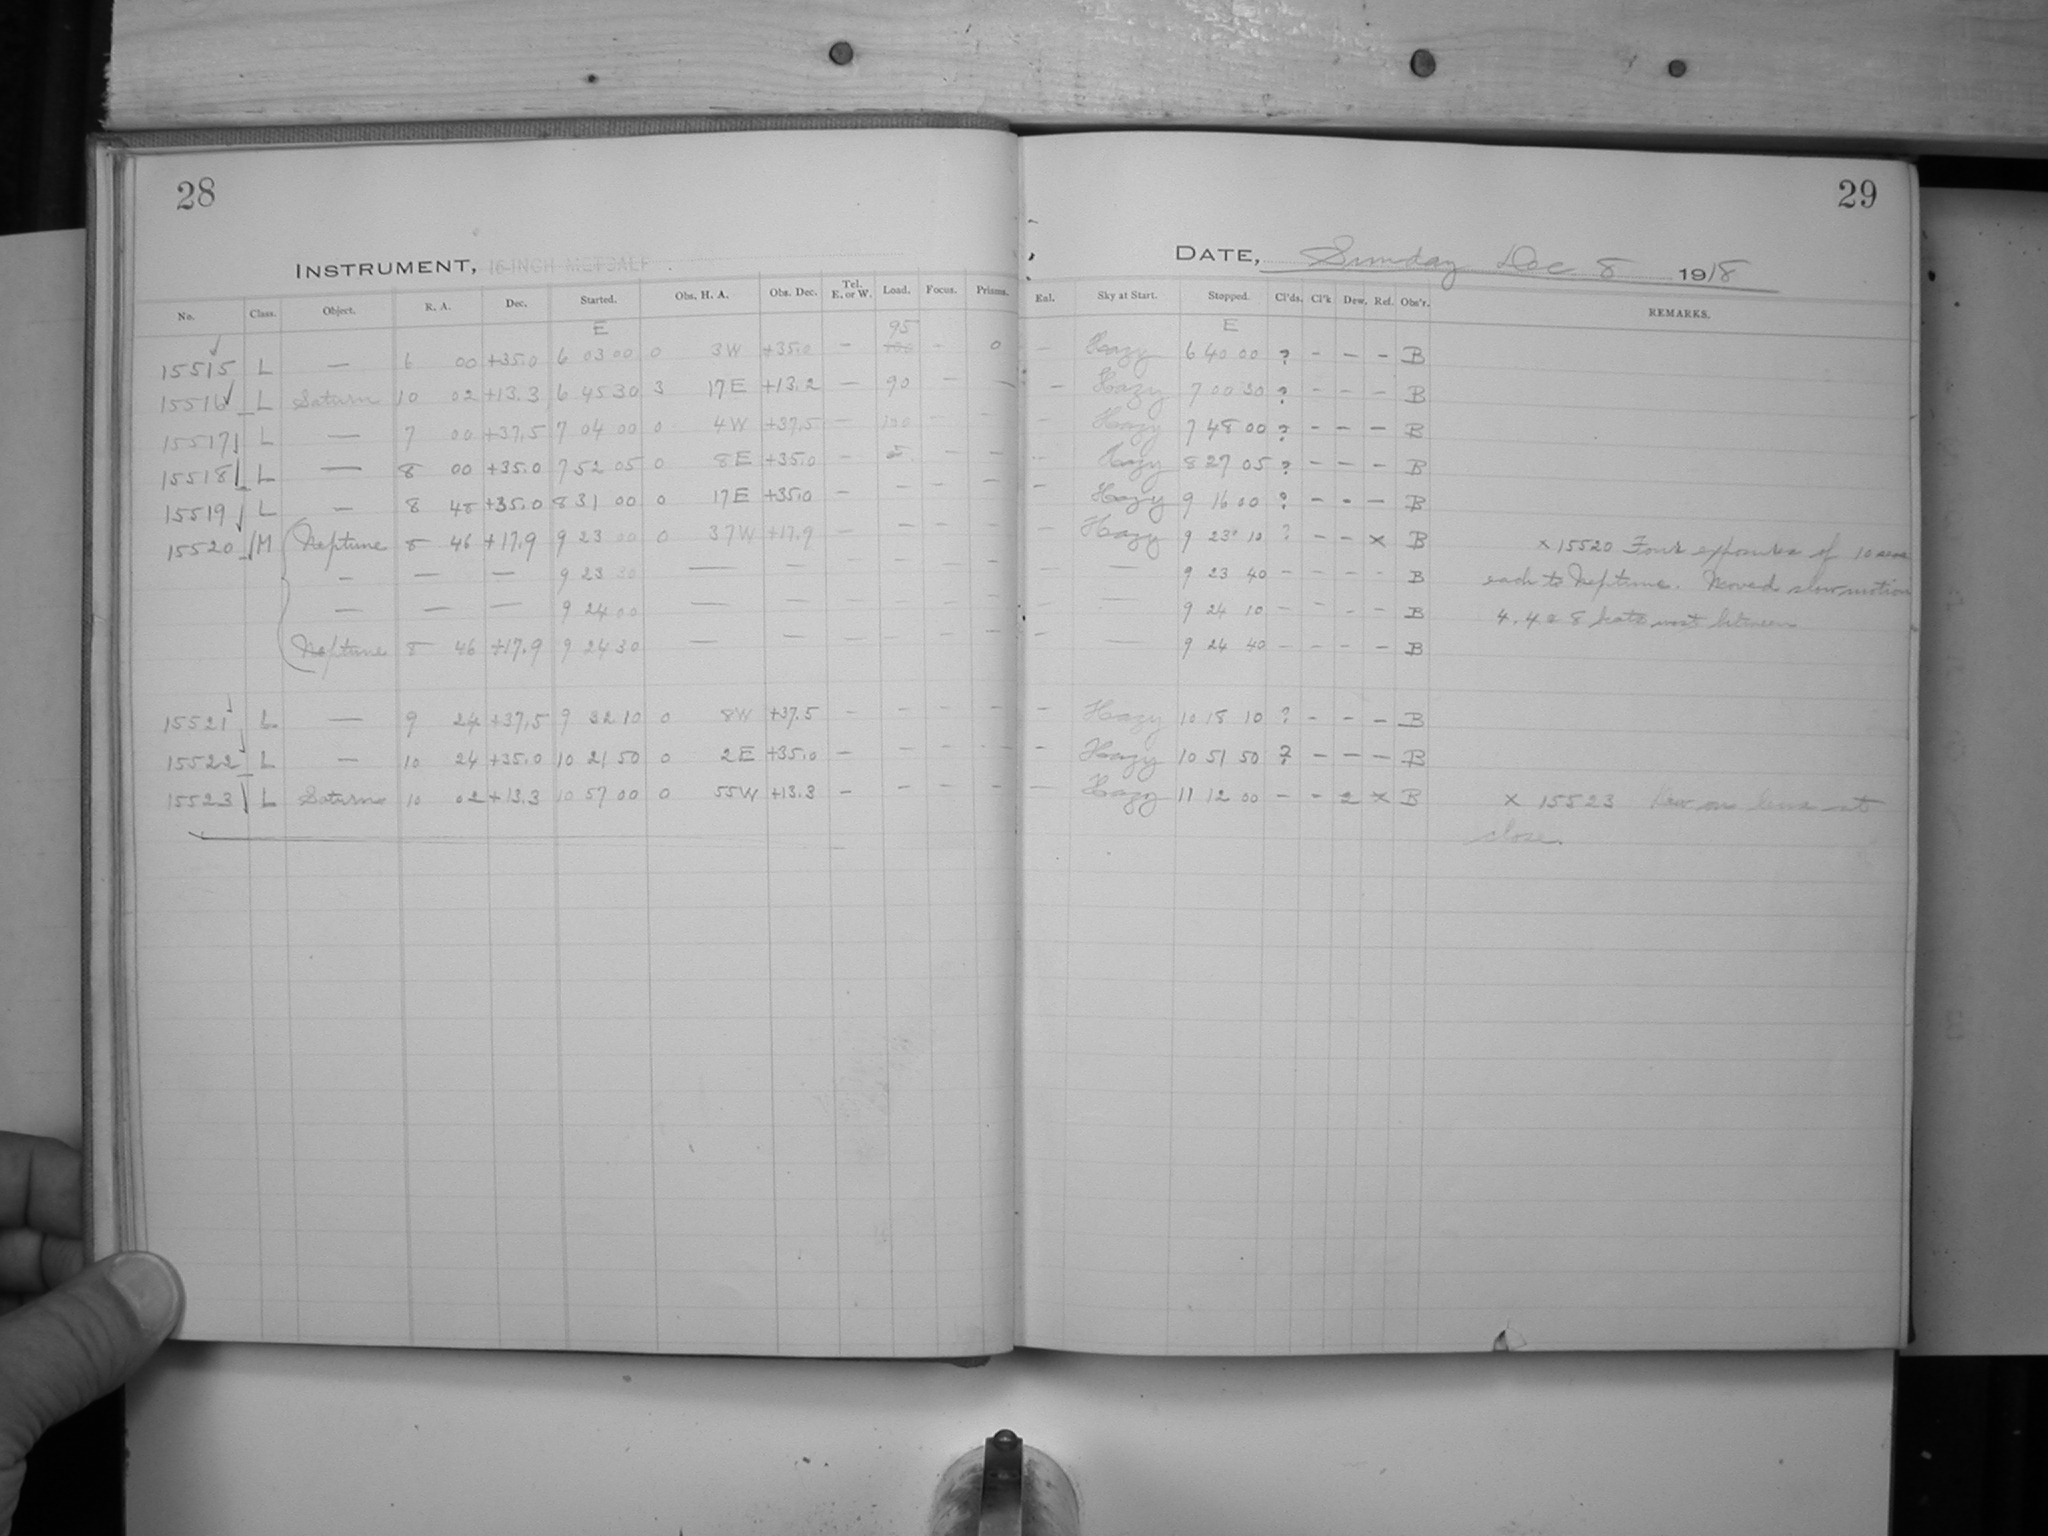 28
INSTRUMENT, 16-INCH METCALF
No. Class. Object. R. A. Dec. Started. Obs. H. A. Obs. Dec. Tel. E. or W. Load. Focus. Prisms.
E 95
15515 L — 6 00 +35.0 6 03 00 0 3W +35.0 — 100 - 0
15516 L Saturn 10 02 +13.3 6 45 30 3 17E +13.2 — 90 - —
15517 L — 7 00 +37.5 7 04 00 0 4W +37.5 — 100 - -
15518 L — 8 00 +35.0 7 52 05 0 8E +35.0 - - -
15519 L — 8 48 +35.0 8 31 00 0 17E +35.0 - - - -
15520 M Neptune 8 46 +17.9 9 23 00 0 37W +17.9 - - - -
- — — 9 23 30 — - - - - -
— — — 9 24 00 — - - - - -
Neptune 8 46 +17.9 9 24 30 — - - - - -
15521 L — 9 24 +37.5 9 32 10 0 8W +37.5 - - - -
15522 L — 10 24 +35.0 10 21 50 0 2E +35.0 - - - -
15523 L Saturn 10 02 +13.3 10 57 00 0 55W +13.3 - - - -
29
DATE, Sunday Dec 8 1918
Sky at Start. Stopped. Cl'ds. Cl'k Dew. Ref. Obs'r. REMARKS.
E
- Hazy 6 40 00 ? - - - B
- Hazy 7 00 30 ? - - - B
- Hazy 7 48 00 ? - - - B
- Hazy 8 27 05 ? - - - B
- Hazy 9 16 00 ? - - - B
- Hazy 9 23 10 ? - - x B x 15520 Four exposures of 10 secs
- — 9 23 40 - - - - B each to Neptune. Moved slow motion
- — 9 24 10 - - - - B 4, 4 & 8 beats west between
- — 9 24 40 - - - - B
- Hazy 10 18 10 ? - - - B
- Hazy 10 51 50 ? - - - B
- Hazy 11 12 00 - - 2 x B x 15523 Dew on lens at
close.